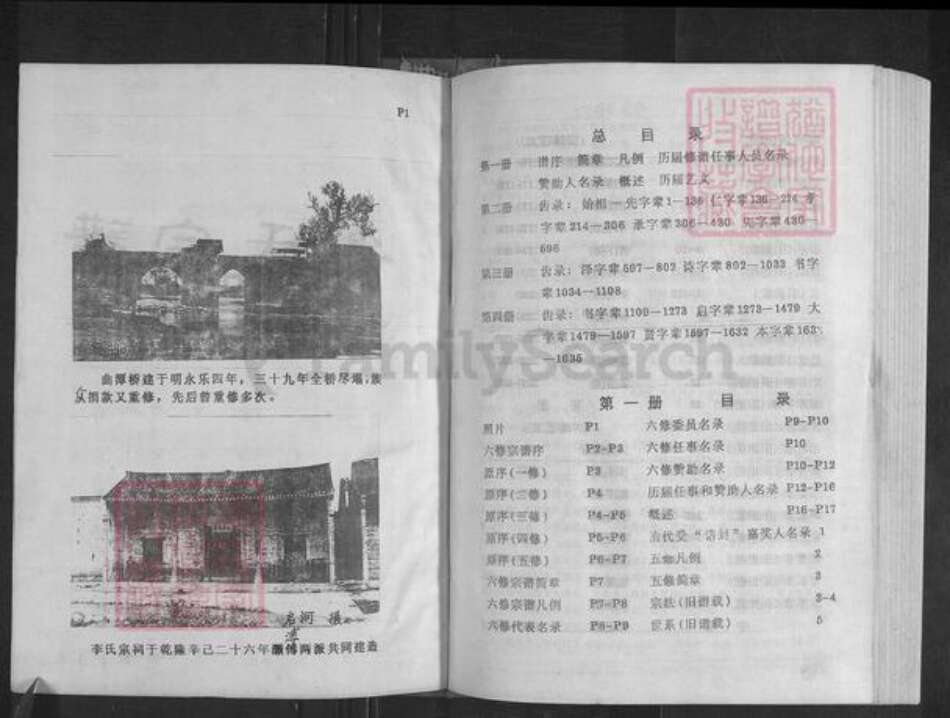 P1
曲潭桥建于明永乐四年，三十九年全桥尽塌，族
众捐款又重修，先后曾重修多次。
李氏家祠于乾隆辛己二十六年 两派共同建造
总 目 录
第一册 谱序 简章 凡例 历届修谱任事人员名录
赞助人名录 概述 历届艺文
第二册 齿录：始祖一先字辈1—136 仁字辈136—214 孝
字辈214—306 承字辈306—430 宪字辈430—
596
第三册 齿录：泽字辈597—802 诗字辈802—1033 书字
辈1034—1108
第四册 齿录：书字辈1109—1273 启字辈1273—1479 大
字辈1479—1597 贤字辈1597—1632 本字辈163
—1635
第 一 册 目 录
照片 P1 六修委员名录 P9-P10
六修宗谱序 P2-P3 六修任事名录 P10
原序(一修) P3 六修赞助名录 P10-P12
原序(二修) P4 历届任事和赞助人名录 P12-P16
原序(三修) P4-P5 概述 P16-P17
原序(四修) P5-P6 古代受“诰封”嘉奖人名录 1
原序(五修) P6-P7 五修凡例 2
六修宗谱简章 P7 五修简章 3
六修宗谱凡例 P7-P8 宗法(旧谱载) 3-4
六修代表名录 P8-P9 世系(旧谱载) 5
FamilySearch